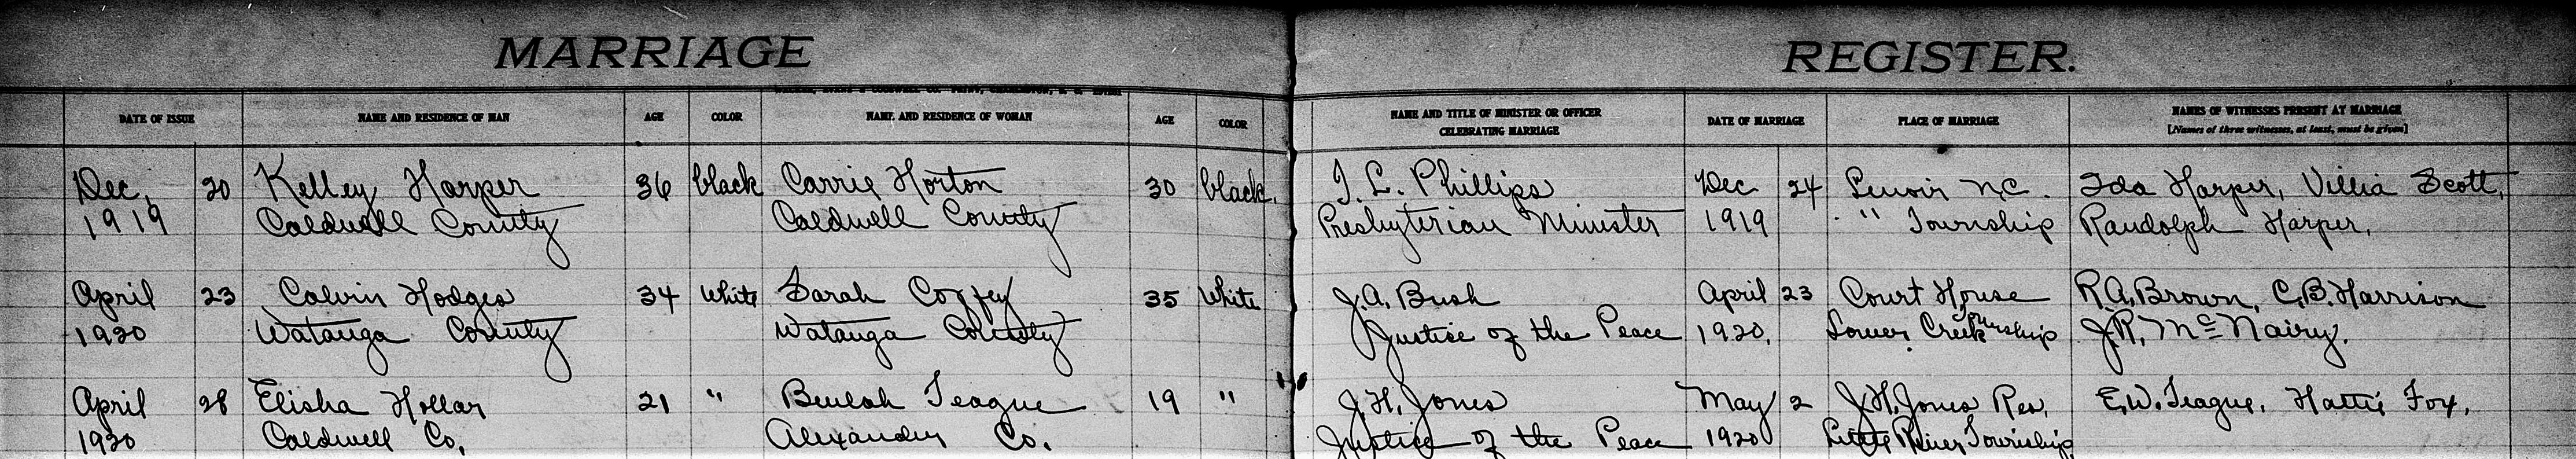 MARRIAGE REGISTER.
DATE OF ISSUE NAME AND RESIDENCE OF MAN AGE COLOR NAME AND RESIDENCE OF WOMAN AGE COLOR NAME AND TITLE OF MINISTER OR OFFICER CELEBRATING MARRIAGE DATE OF MARRIAGE PLACE OF MARRIAGE NAMES OF WITNESSES PRESENT AT MARRIAGE
[Names of three witnesses, at least, must be given]
Dec, 20 Kelley Harper 36 black Carrie Horton 30 black. J. L. Phillips Dec 24 Lenoir N.C. Ida Harper, Villia Scott,
1919 Caldwell County Caldwell County Presbyterian Minister 1919 " Township Randolph Harper,
April 23 Calvin Hodges 34 White Sarah Coffey 35 White J.A. Bush April 23 Court House R.A. Brown, C.B. Harrison
1920 Watauga County Watauga County Justice of the Peace 1920, Lower Creek Township J.R. McNairy.
April 28 Elisha Hollar 21 " Beulah Teague 19 " J.H. Jones May 2 J.H. Jones Res, E.W. Teague, Hattie Fox,
1920 Caldwell Co, Alexander Co. Justice of the Peace 1920 Little River Township